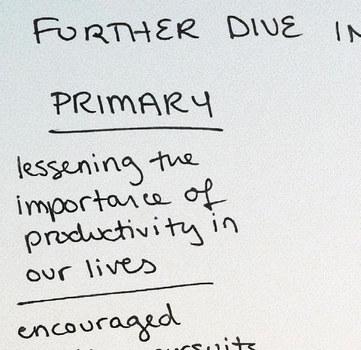 FURTHER DIVE IN
PRIMARY
lessening the
importance of
productivity in
our lives
encouraged